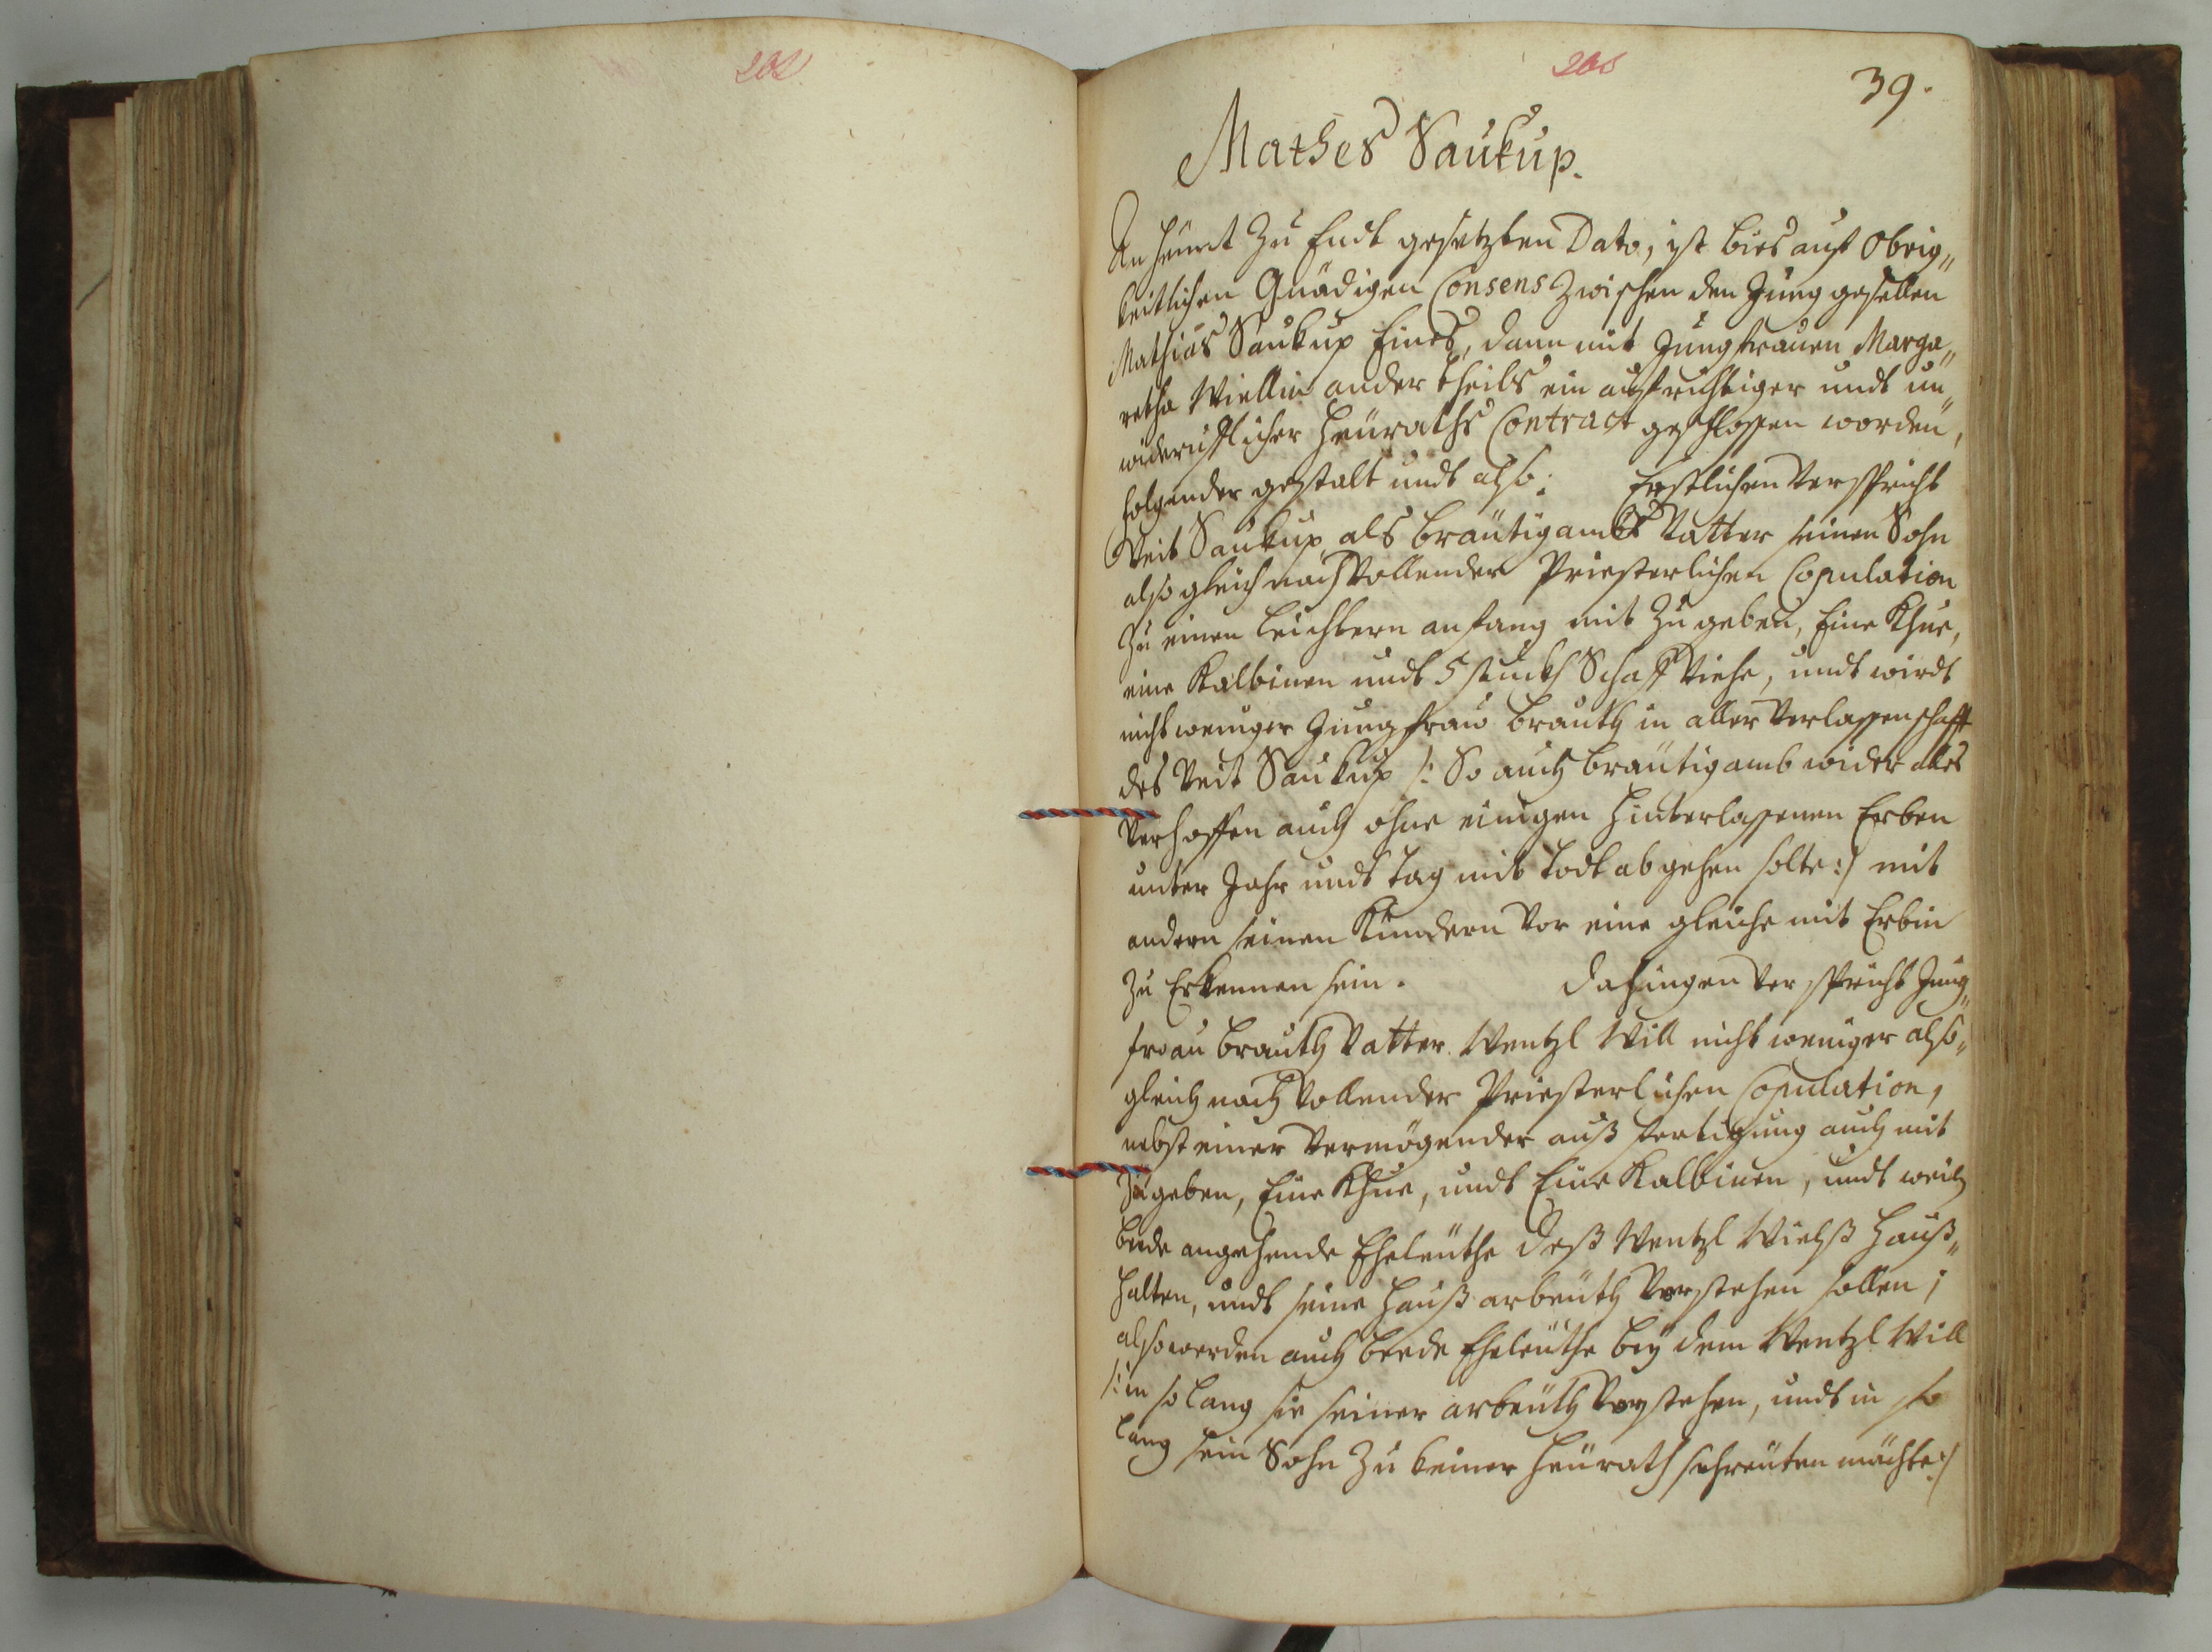 202
39.
Mathes Saukup.
An heünt zu Endt gesetzten Dato, ist bies auf Obrig„
keitlichen Gnädigen Consens zwischen den Jung gesellen
Mathias Saukup Eines, dann mit Jungfrauen Marga„
retha Wiellin ander theils ein aufrichtiger undt un„
wideruflicher Heuraths Contract geschlossen worden,
folgender gestalt undt also: Erstlichen verspricht
Veit Saukup als Bräutigambs Vatter seinen Sohn
also gleich nach vollender Priesterlichen Copulation
zu einen leichtern anfang mit zu geben, Eine Khue,
eine Kalbinen undt 5 stuckh Schaff Viehe, undt wirdt
nicht weniger Jungfrau Brauth in aller Verlassenschafft
des Veit Saukup /: So auch Bräutigamb wider alles
verhoffen auch ohne einigen hinterlassenen Erben
unter Jahr undt tag mit todt abgehen solte :/ mit
andern seinen Kündern vor eine gleiche mit Erbin
zu Erkennen sein. Dahingen verspricht Jung„
frau Brauth Vatter Wentzl Will nicht weniger also„
gleich nach vollender Priesterlichen Copulation,
nebst einer vermögender auß fertigung auch mit
zugeben, Eine Khue, undt Eine Kalbinen, undt weil
beede angehende Eheleüthe deß Wentzl Wielß Hauß„
halten, undt seine Hauß arbeüth vorstehen sollen;
also werden auch beede Eheleüthe bey dem Wentzl Will
/: in so lang sie seiner arbeüth vorstehen, undt in so
lang sein Sohn zu keiner Heürath schreüten mächte :/